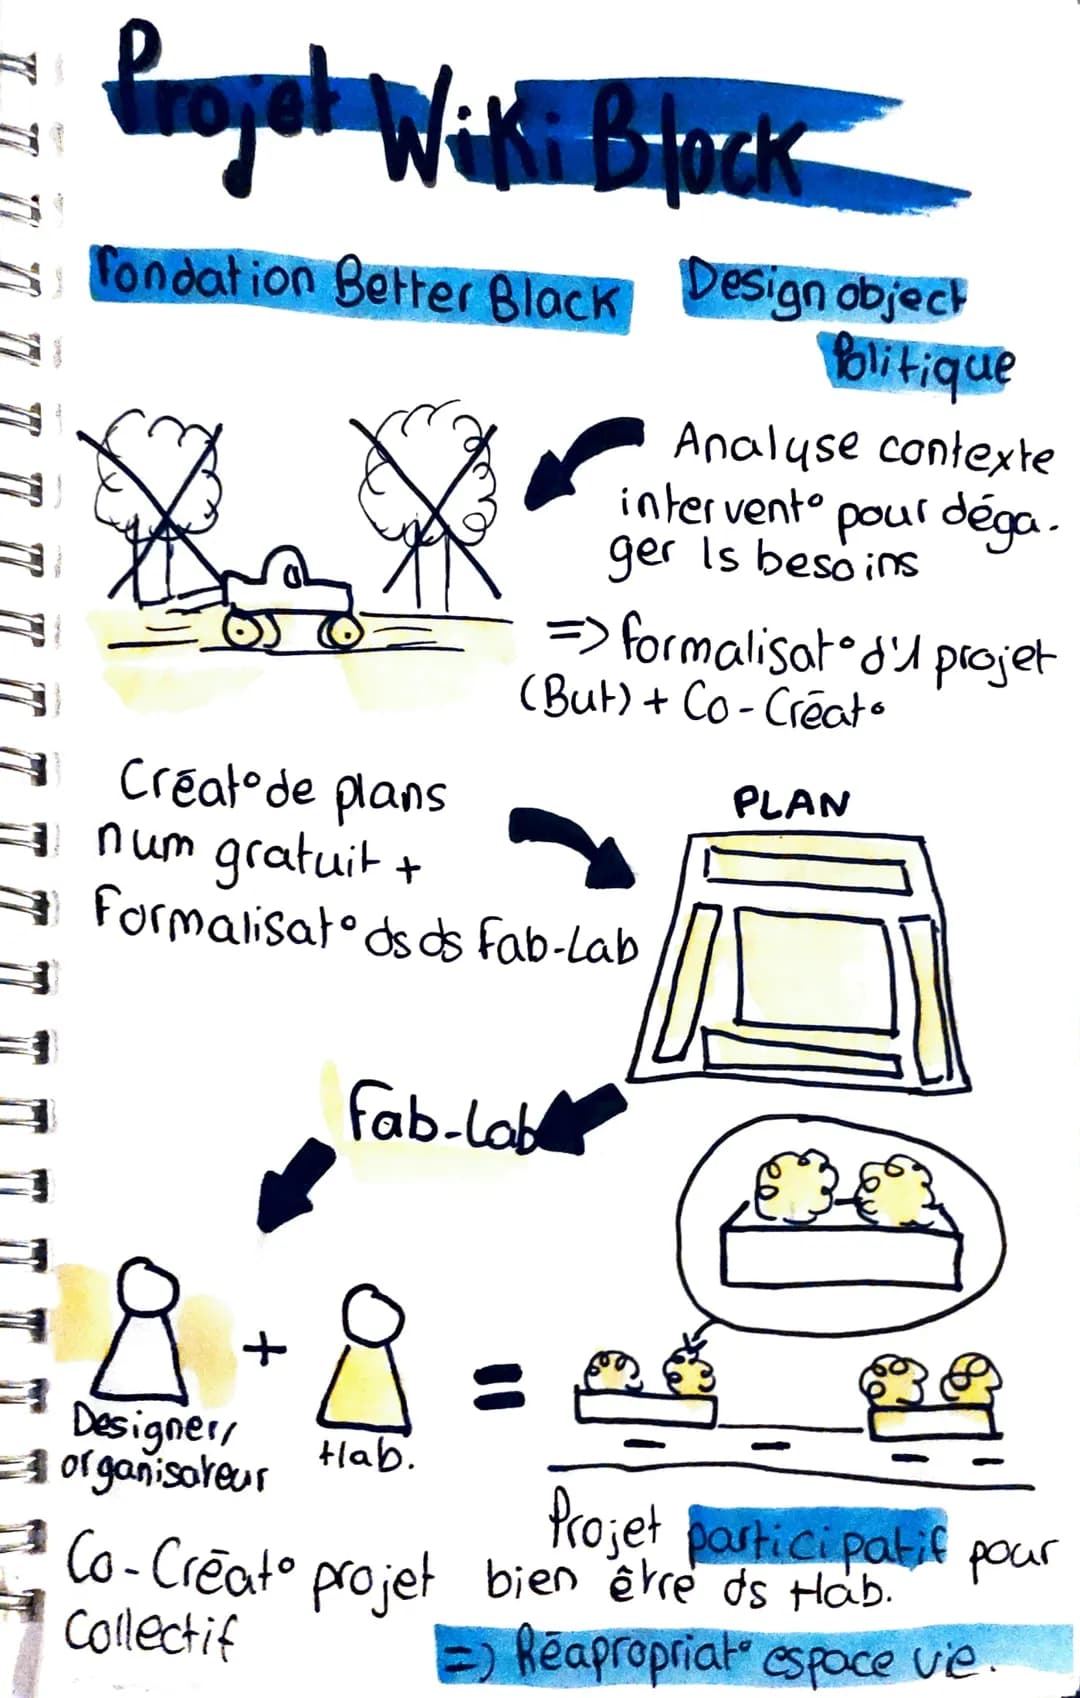 Projet Wiki Block
Fondation Better Black
Design object
Politique
Analyse contexte
intervent° pour déga-
ger ls besoins
=> formalisat° d'1 projet
(But) + Co-Créat°
Créat° de plans
num gratuit +
Formalisat° ds ds Fab-Lab
PLAN
Fab-Lab
+
=
Designer/
organisateur
Hab.
Co-Créat° projet
Collectif
Projet participatif pour
bien être ds Hab.
=> Réapropriat° espace vie.